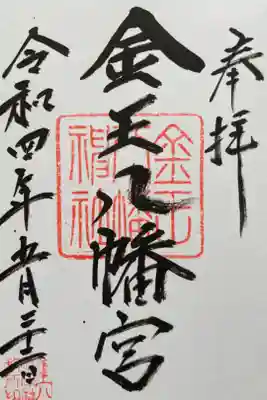 奉拝
金王八幡宮
金王
八幡
神社
令和四年五月